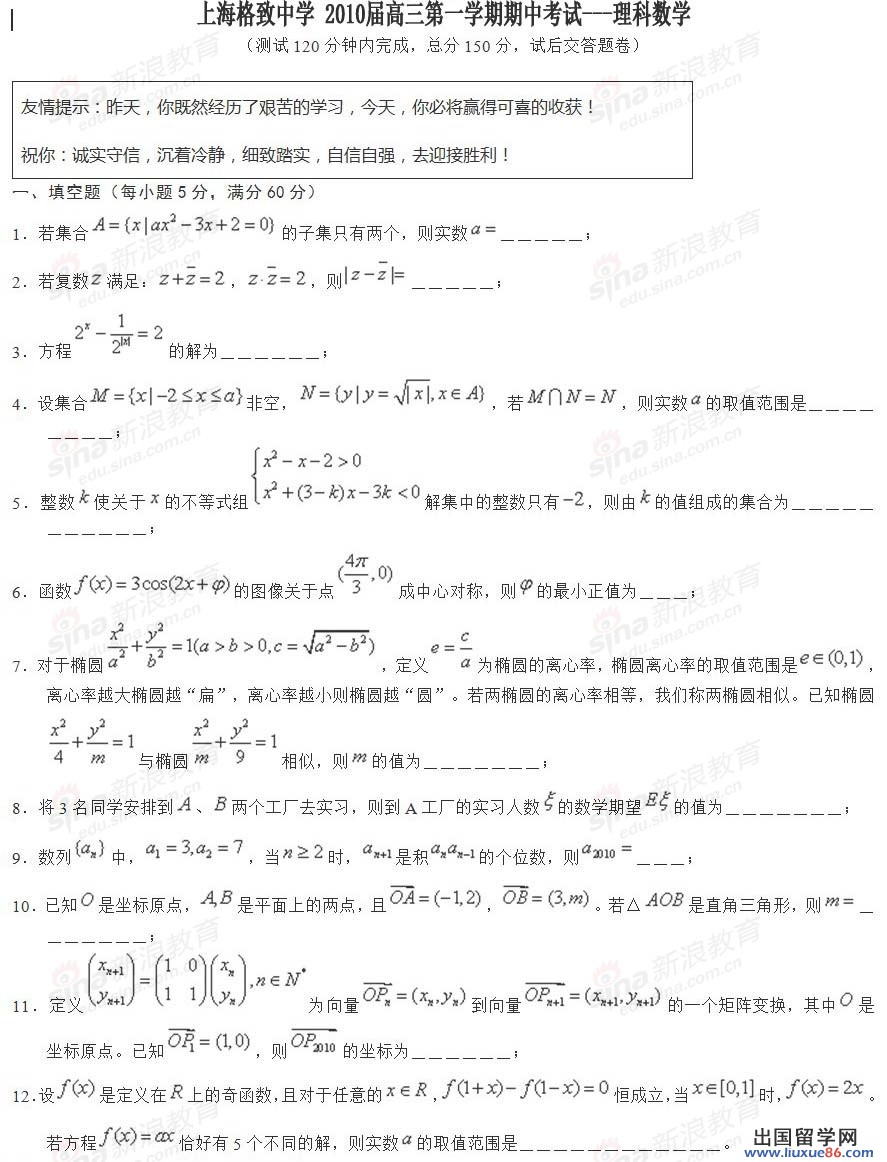 上海格致中学 2010届高三第一学期期中考试---理科数学
（测试120分钟内完成，总分150分，试后交答题卷）
友情提示：昨天，你既然经历了艰苦的学习，今天，你必将赢得可喜的收获！
祝你：诚实守信，沉着冷静，细致踏实，自信自强，去迎接胜利！
一、填空题（每小题5分，满分60分）
1．若集合 A={x|ax²-3x+2=0} 的子集只有两个，则实数 a=＿＿＿＿＿；
2．若复数 z 满足：z+z̅=2，z·z̅=2，则|z-z̅|=＿＿＿＿＿；
3．方程 2^x - 1/2^|x| = 2 的解为＿＿＿＿＿＿；
4．设集合 M={x|-2≤x≤a} 非空， N={y|y=√|x|,x∈A}，若 M∩N=N，则实数 a 的取值范围是＿＿＿＿
＿＿＿＿；
5．整数 k 使关于 x 的不等式组 { x²-x-2>0 x²+(3-k)x-3k<0 解集中的整数只有 -2，则由 k 的值组成的集合为＿＿＿＿＿
＿＿＿＿＿＿；
6．函数 f(x)=3cos(2x+φ) 的图像关于点 (4π/3,0) 成中心对称，则 φ 的最小正值为＿＿＿；
7．对于椭圆 x²/a²+y²/b²=1(a>b>0,c=√(a²-b²))，定义 e=c/a 为椭圆的离心率，椭圆离心率的取值范围是 e∈(0,1)，
离心率越大椭圆越“扁”，离心率越小则椭圆越“圆”。若两椭圆的离心率相等，我们称两椭圆相似。已知椭圆
x²/4+y²/m=1 与椭圆 x²/m+y²/9=1 相似，则 m 的值为＿＿＿＿＿＿＿；
8．将3名同学安排到 A、B 两个工厂去实习，则到 A 工厂的实习人数 ξ 的数学期望 Eξ 的值为＿＿＿＿＿＿＿；
9．数列 {aₙ} 中， a₁=3,a₂=7，当 n≥2 时， aₙ₊₁ 是积 aₙaₙ₋₁ 的个位数，则 a₂₀₁₀ =＿＿＿；
10．已知 O 是坐标原点， A,B 是平面上的两点，且 OA=(-1,2)， OB=(3,m)。若△ AOB 是直角三角形，则 m=＿
＿＿＿＿＿＿；
11．定义 (xₙ₊₁ yₙ₊₁)=(1 0 1 1)(xₙ yₙ),n∈N* 为向量 OPₙ=(xₙ,yₙ) 到向量 OPₙ₊₁=(xₙ₊₁,yₙ₊₁) 的一个矩阵变换，其中 O 是
坐标原点。已知 OP₁=(1,0)，则 OP₂₀₁₀ 的坐标为＿＿＿＿＿＿；
12.设 f(x) 是定义在 R 上的奇函数，且对于任意的 x∈R，f(1+x)-f(1-x)=0 恒成立，当 x∈[0,1] 时，f(x)=2x。
若方程 f(x)=ax 恰好有5个不同的解，则实数 a 的取值范围是＿＿＿＿＿＿＿＿＿＿＿＿。
出国留学网
www.liuxue86.com
sina新浪教育
edu.sina.com.cn